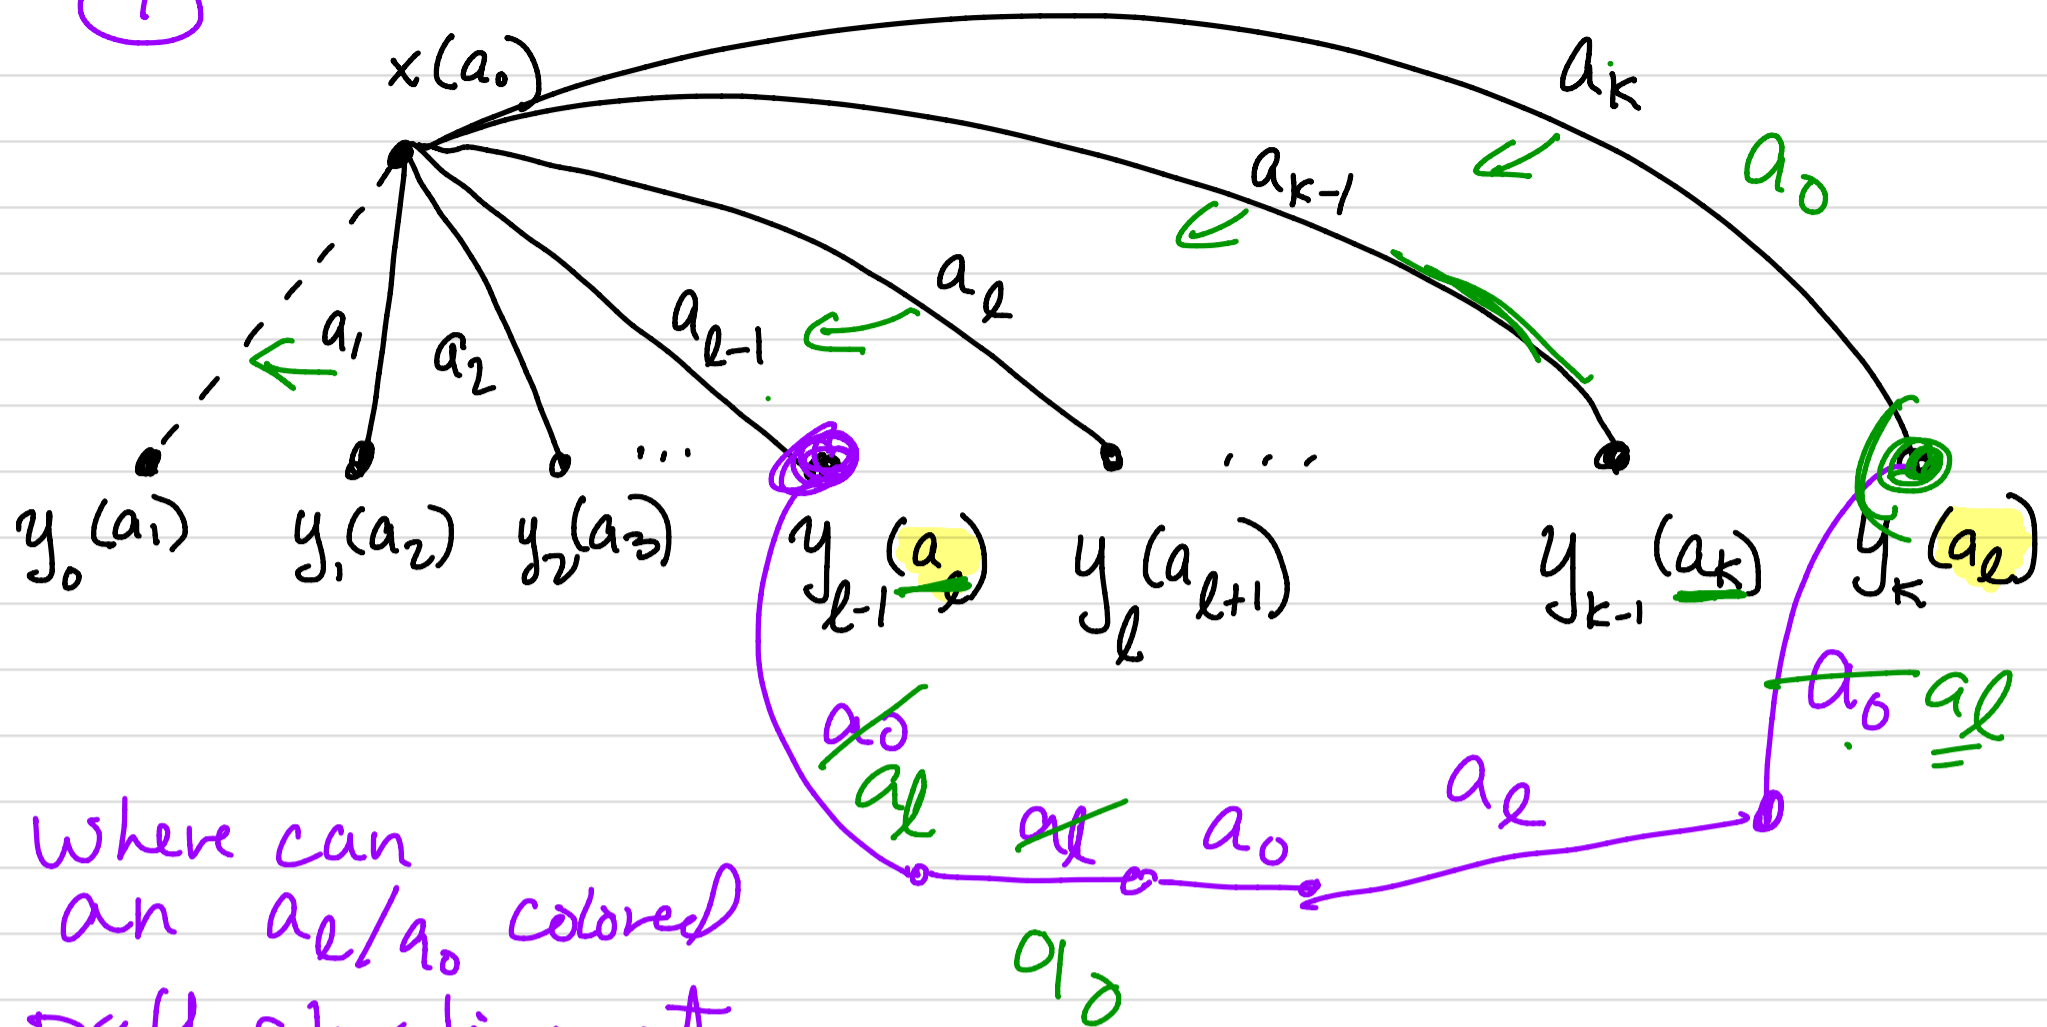 1
x(a₀)
aₖ
a₀
aₖ₋₁
aₗ
aₗ₋₁
a₁
a₂
... ...
y₀(a₁) y₁(a₂) y₂(a₃) yₗ₋₁(aₗ) yₗ(aₗ₊₁) yₖ₋₁(aₖ) yₖ(aₗ)
a₀ aₗ
a₀
aₗ
aₗ
aₗ a₀
a₀
where can
an aₗ/a₀ colored